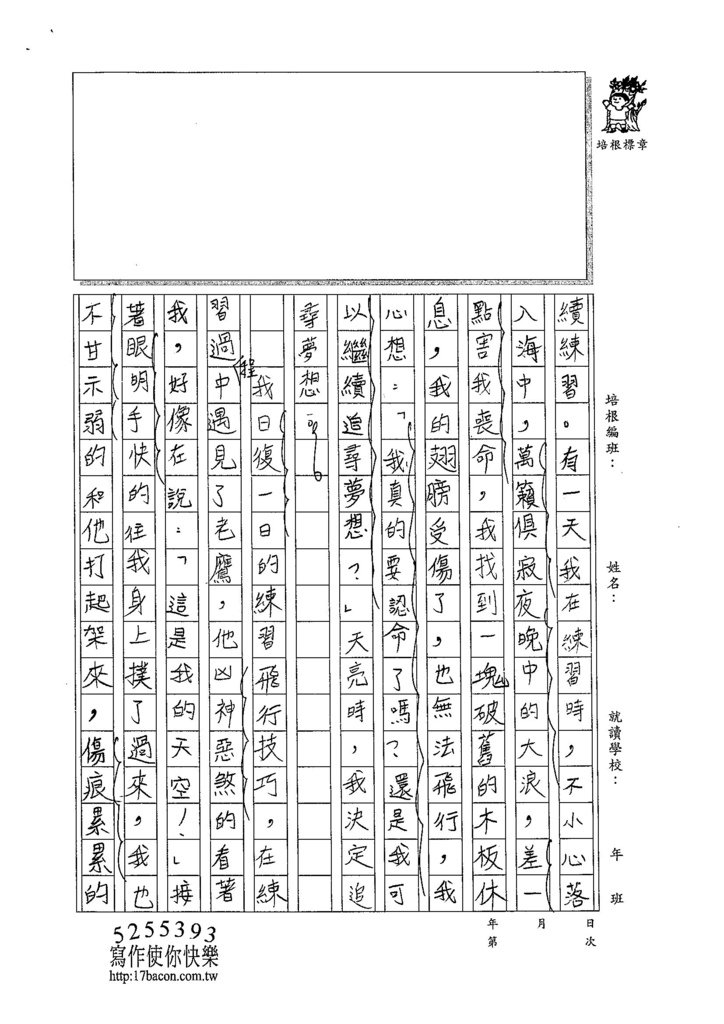 培根標章
培根編班：　姓名：　就讀學校：　年　班
年　月　日
第　次
續練習。有一天我在練習時，不小心落
入海中，萬籟俱寂夜晚中的大浪，差一
點害我喪命，我找到一塊破舊的木板休
息，我的翅膀受傷了，也無法飛行，我
心想：「我真的要認命了嗎？還是我可
以繼續追尋夢想？」天亮時，我決定追
尋夢想。
我日復一日的練習飛行技巧，在練
習過程中遇見了老鷹，他凶神惡煞的看著
我，好像在說：「這是我的天空！」接
著眼明手快的往我身上撲了過來，我也
不甘示弱的和他打起架來，傷痕累累的
5255393
寫作使你快樂
http:17bacon.com.tw